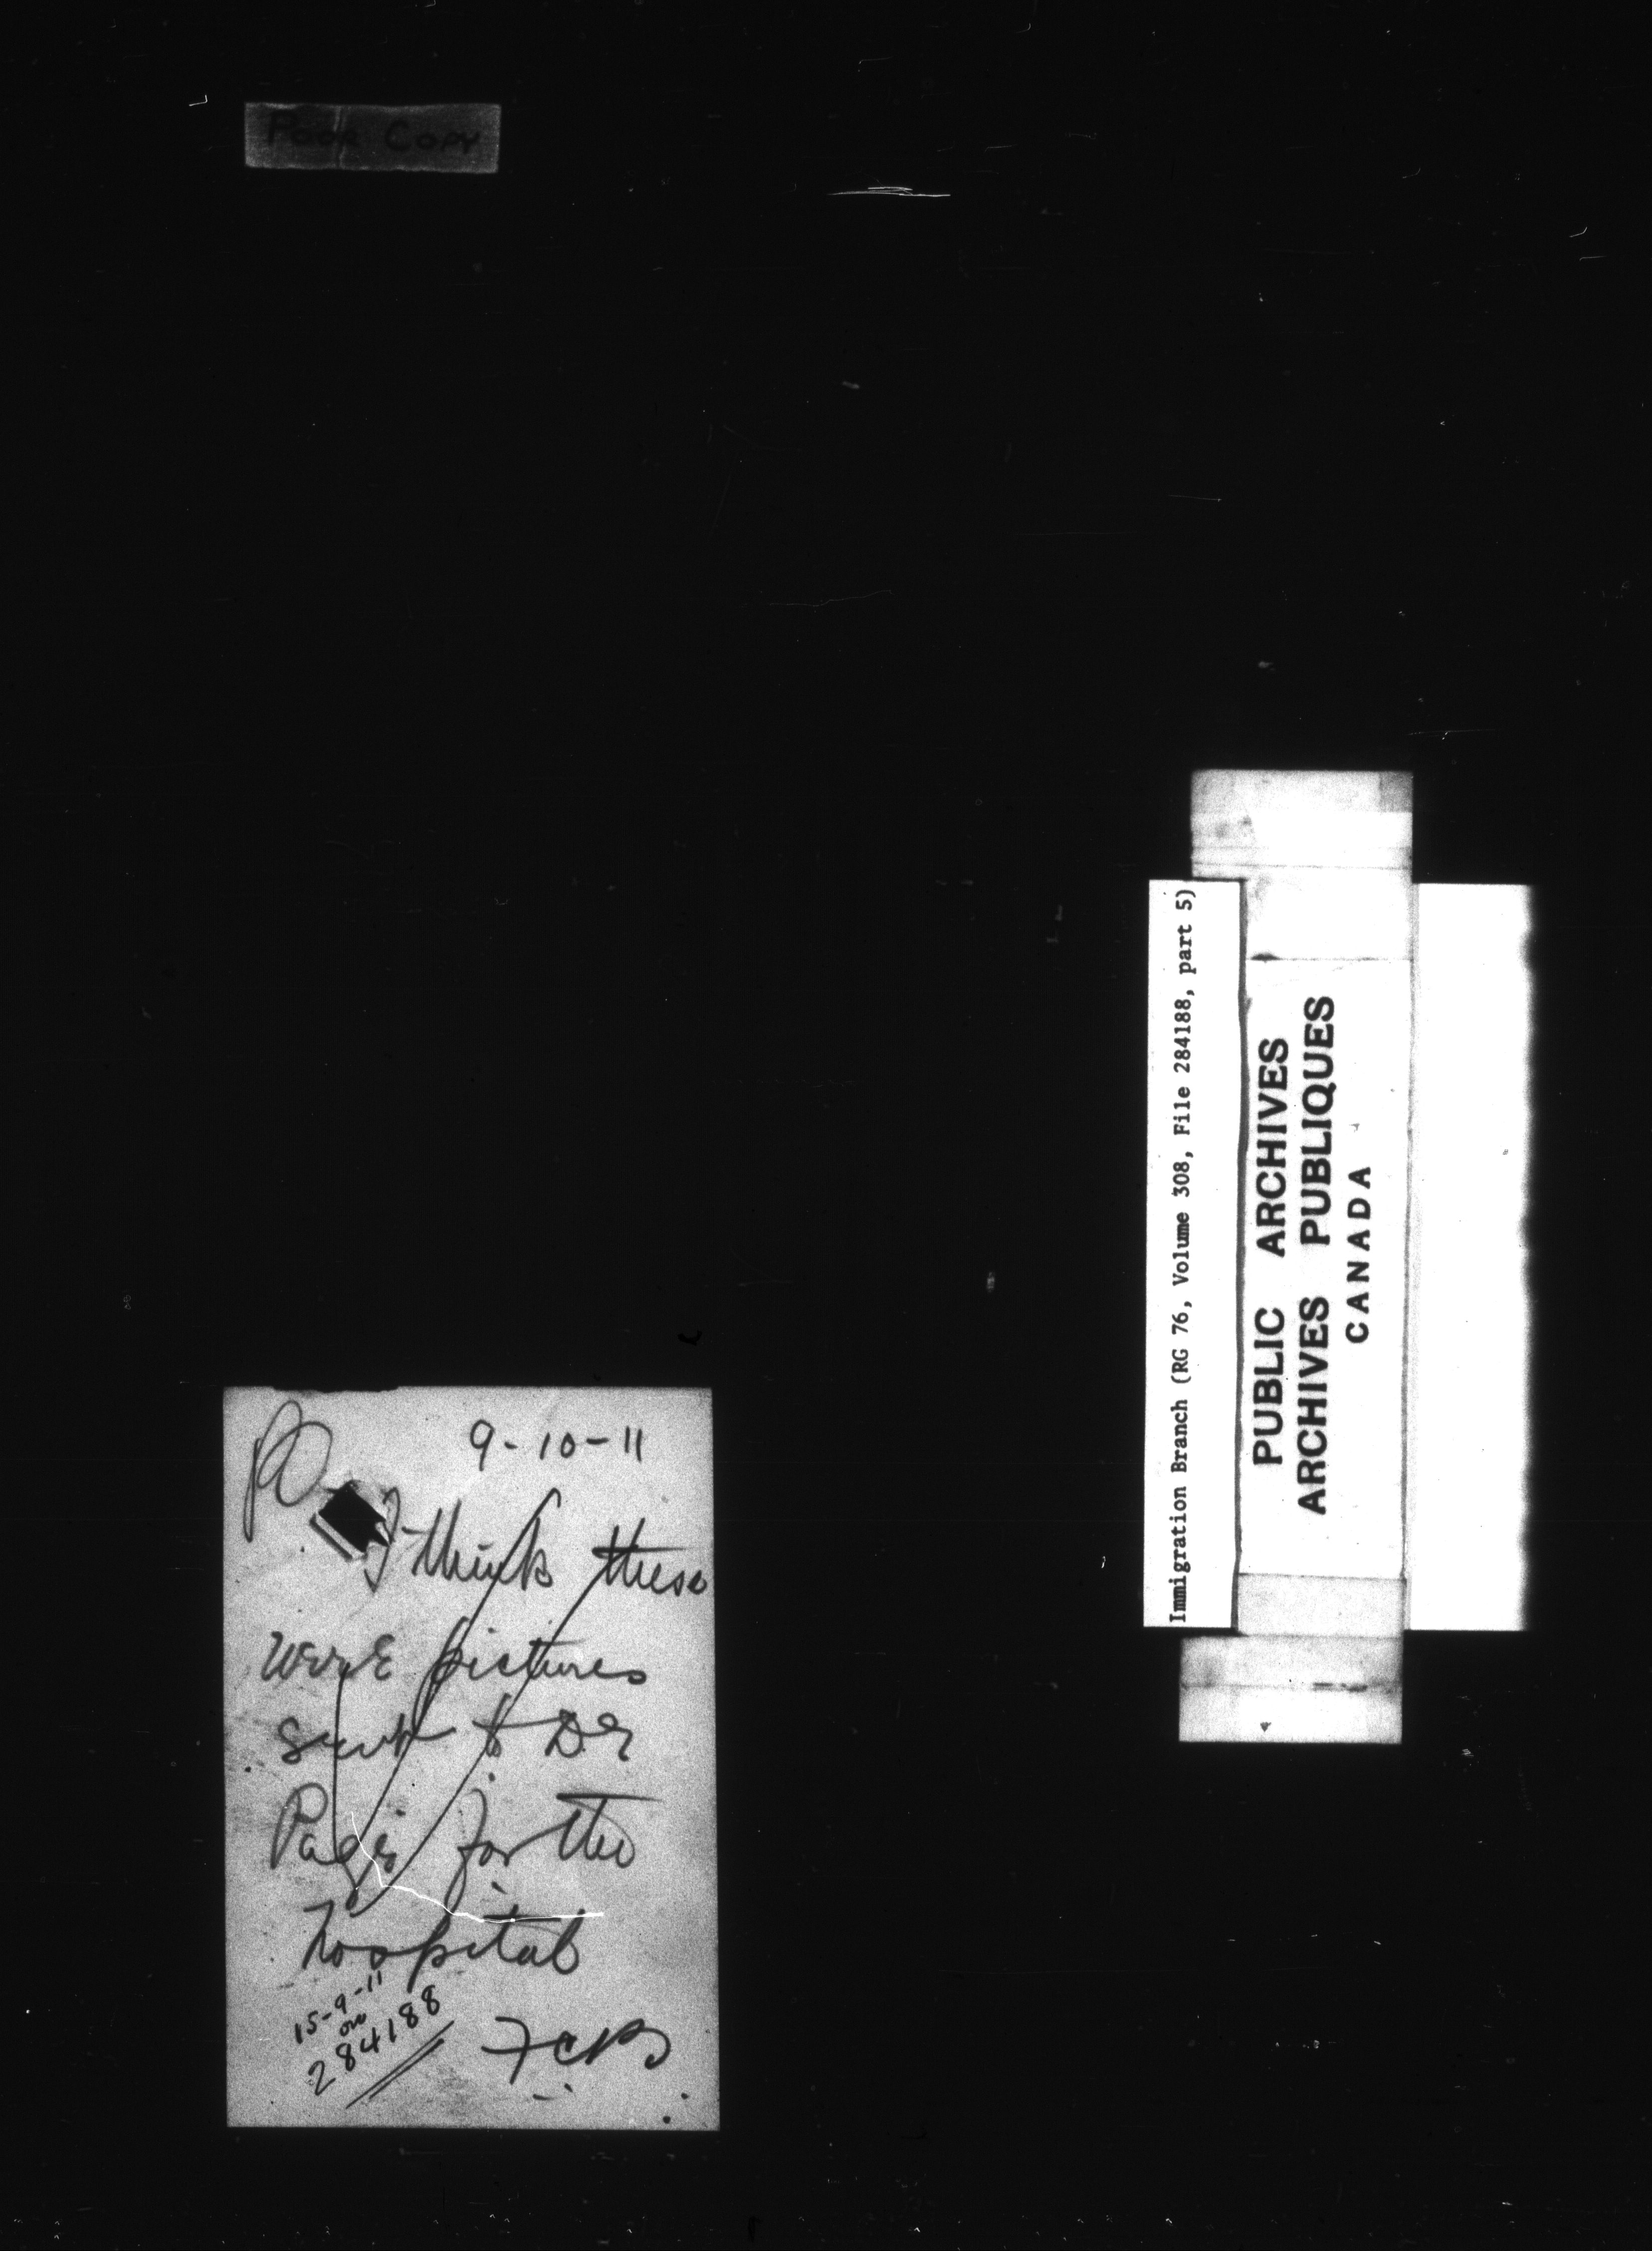 Poor Copy
9-10-11
PO
I think these
were pictures
sent to Dr
Pagé for the
hospital
15-9-11
on
284188
FCB
Immigration Branch (RG 76, Volume 308, File 284188, part 5)
PUBLIC ARCHIVES
ARCHIVES PUBLIQUES
CANADA